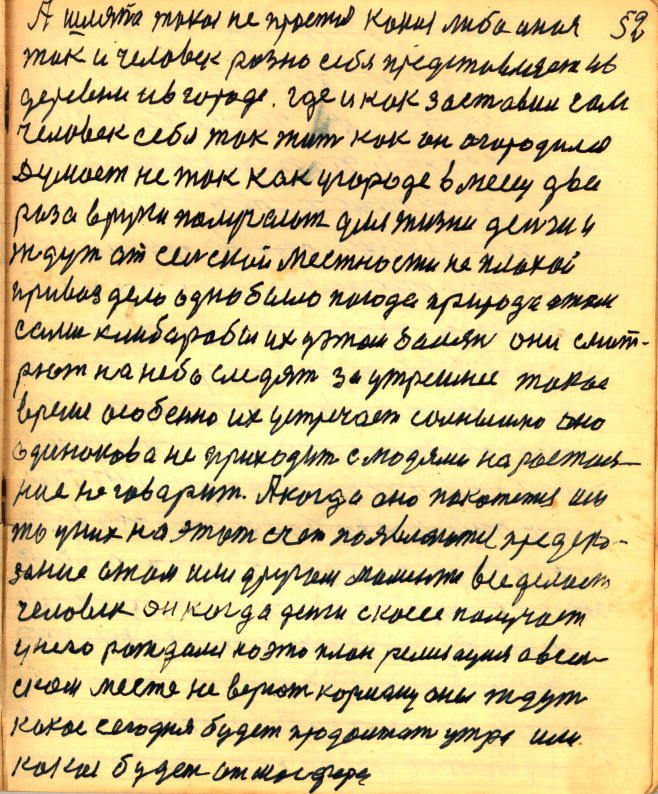 А шляпа такая не простая какая либо иная 59
так и человек разно себя представляет и в
деревни и в городе. где и как заставил сам
человек себя так жит как он огородился
Думает не так как у городе в месец два
раза в руки получают для жизни денги и
ждут от селской местности не плохой
привоз дело одно было погода природа этом
сами они смот-
рют на небо следят за утрешнее такое
время особенно их устречает солнышко оно
одинокова не приходит с людями на ростоя-
ние не говарит. А когда оно покотется
то у них на этот счет появляится предска-
зание о том или другом моменти все делает
человек он когда денги скоее получает
у него рождался на это план релизация о всем
ском месте не вернот корману они ждут
какое сегодня будет продолжат утро или
какая будет атмосфера